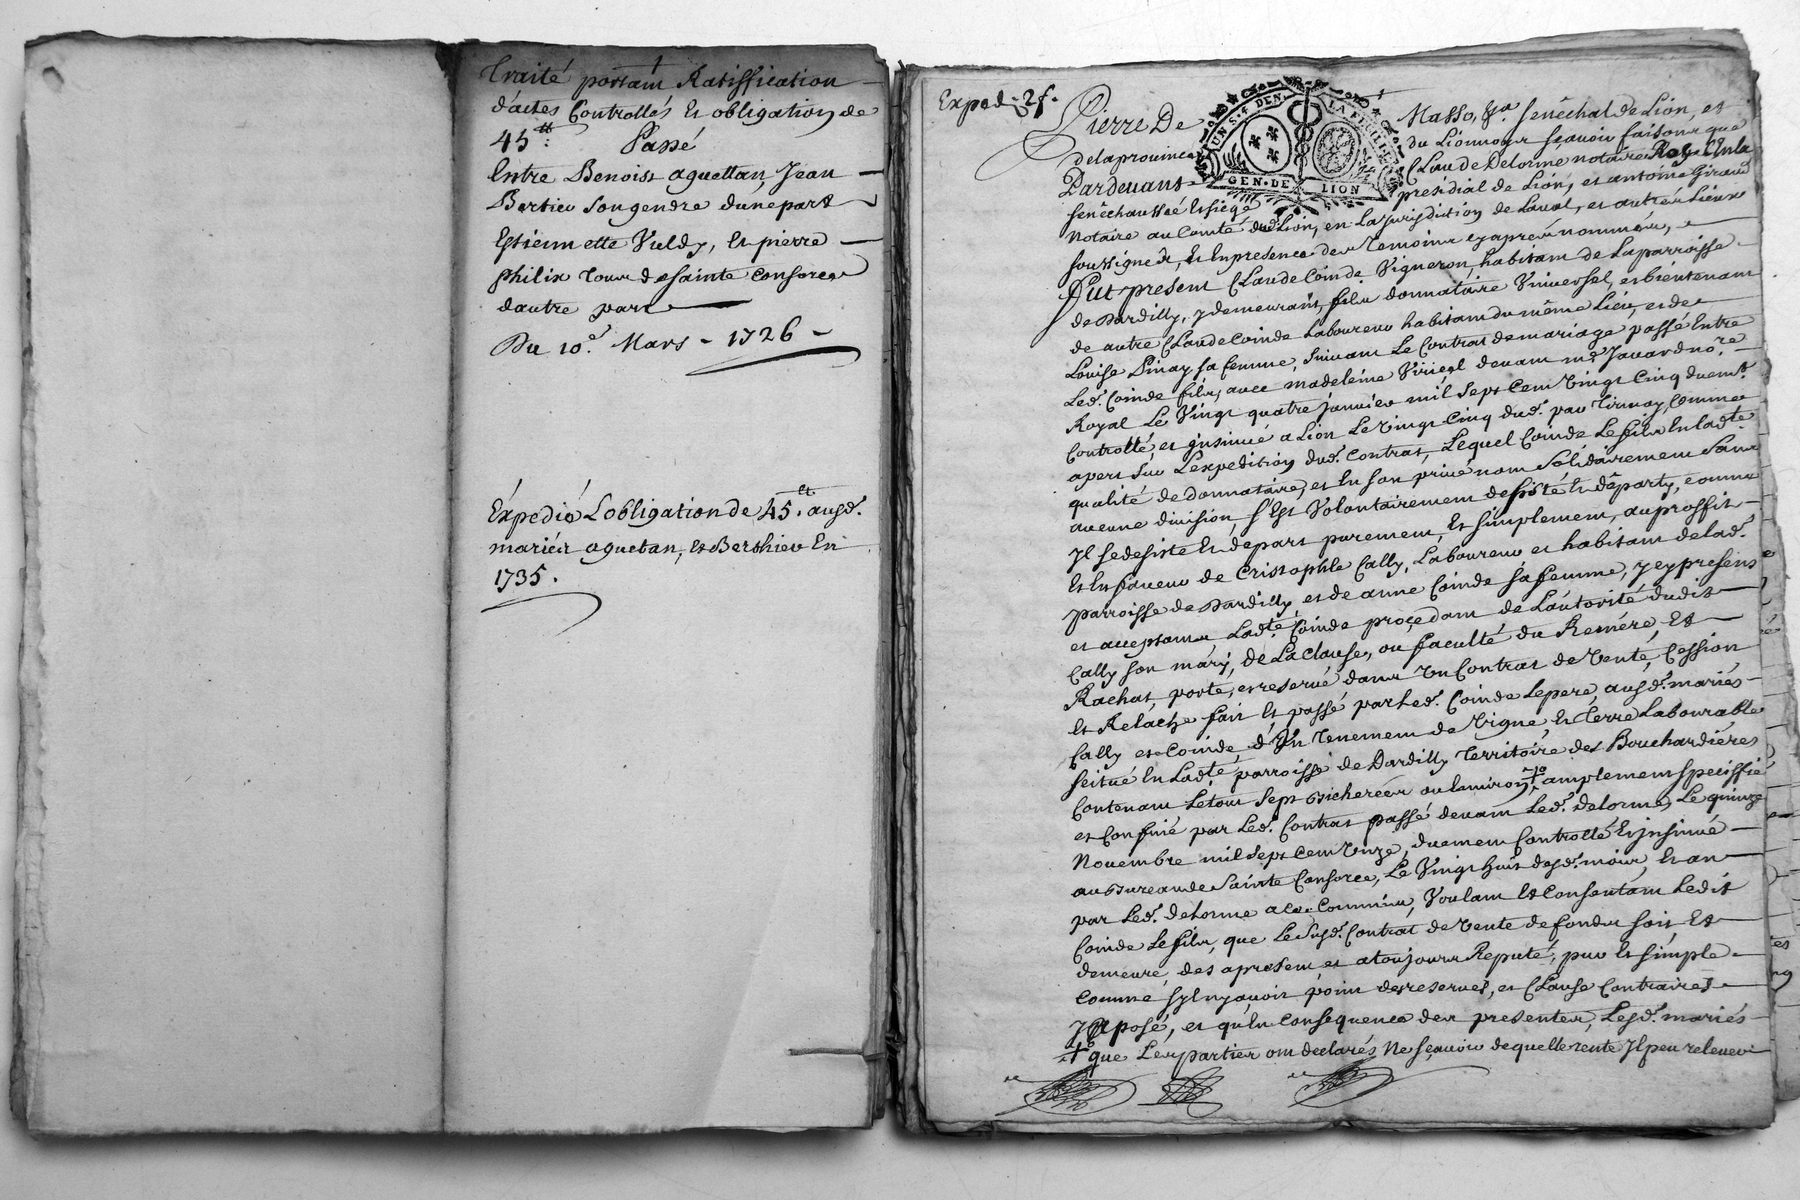 Traité portam Ratiffication
d'actes Controllés Et obligation de
45ᵗᵗ: Passé
Entre Benoist aguettan, Jean
Bertieu Son gendre d'une part
Estiennette Vuldy, Et pierre
philix Tour de sainte Consorce
d'autre part
Du 10.e Mars - 1726 -
Expedié L'obligation de 45.ᵗᵗ ausd.
mariés aguetan, et Berthieu En
1735.
Exped. 2f.
UN S. 4 DEN. LA FEUILLE
GEN. DE LION
Pierre De Masso, Sénéchal de Lion, et
de la prouince du Lionnois scauoir faisons que
Pardeuant Claude Delorme notaire Roy. En la
senéchaussée Et siege presidial de Lion, et antoine Giraud
Notaire au Comté dud. Lion, en La Jurisdiction de Laual, et autres Lieux
soussignés, Et En presence des Temoins cy aprés nommés,
Fut present Claude Coinde Vigneron, habitant de La parroisse
de Dardilly, y demeurant, fils donnataire Vniuersel, et bientenant
de autre Claude Coinde Laboureur habitant du même Lieu, et de
Louise Pinay sa femme, suiuant Le Contrat de mariage passé Entre
Led. Coinde fils, auec madeleine devant me Jauard no.re
Royal Le Vingt quatre januier mil sept cent vingt Cinq duemt.
Controllé, et jnsinué a Lion Le vingt Cinq dud. par Tirnay, Comme
apert sur L'expedition dud. Contrat, Lequel Coinde Le fils En ladte.
qualité de donnataire, et En son priué nom solidairement sans
aucune diuision, s'Est Volontairement desisté Et departy, comme
Jl se desiste Et depart purement, Et simplement, au proffit
Et En faueur de Cristophle Cally, Laboureur et habitant de lad.
parroisse de Dardilly, et de anne Coinde sa femme, jcy presens
et acceptants Ladte. Coinde procedant de L'autorité dudit
Cally son mary, de La Clause, ou faculté du Reméré, Et
Rachat, porté, et reservé dans Vn Contrat de Vente, Cession
Et Relache fait Et passé par Led. Coinde Le pere, ausd. mariés
Cally et Coinde, d'Vn Tenement de Vigne, Et Terre Labourable
scitué En Ladte. parroisse de Dardilly Territoire des Bouchardiéres
Contenant Le tout sept bicherées ou Enuiron, amplement speciffié
et Confiné par Led. Contrat passé deuant Led. delorme, Le quinze
Nouembre mil sept Cent vnze, duement Controllé Et jnsinué
au Bureau de Sainte Consorce, Le Vingt huit desd. mois, Et an
par Led. delorme a ce Commis, Voulant Et Consentant Ledit
Coinde Le fils, que Le susd. Contrat de Vente de fonds soit Et
demeure, des apresent, et a toujours Reputé, pur Et simple
comme s'jl n'y auoit point de reserues, et Clause Contraires
posé, et qu'En Consequence des presentes, Lesd. mariés
que Les parties ont declarés Ne sçauoir de quelle rente Jl peu releuer